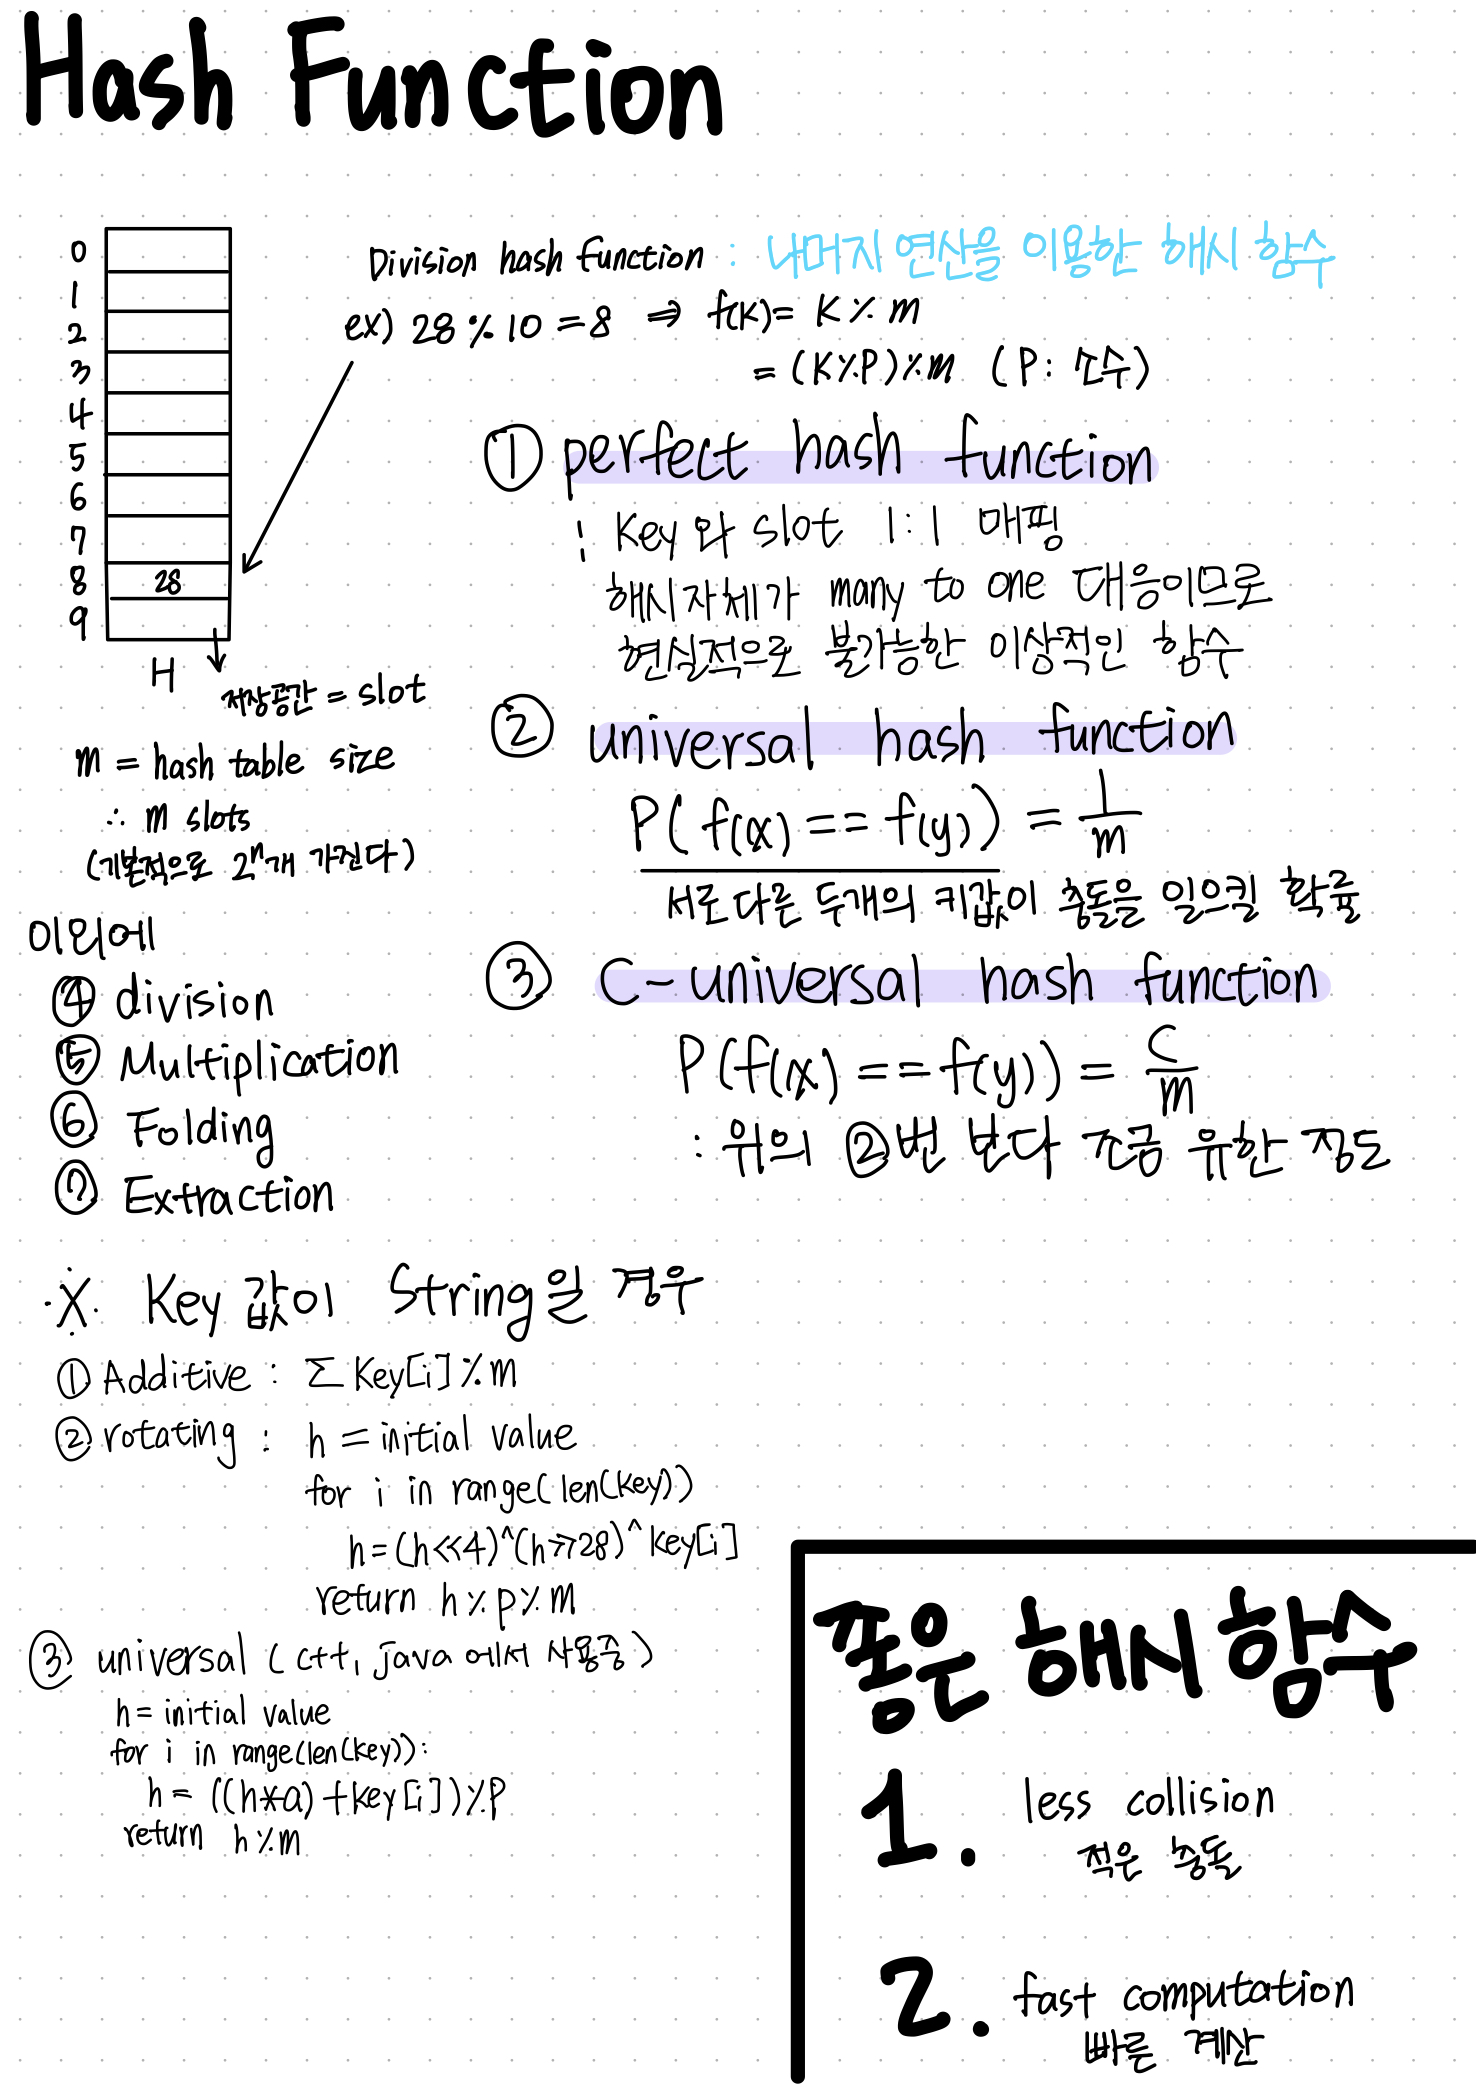 Hash Function
0
1
2
3
4
5
6
7
8 28
9
H
저장공간 = slot
m = hash table size
∴ m slots
(기본적으로 2ⁿ개 가진다)
Division hash function : 나머지 연산을 이용한 해시 함수
ex) 28 % 10 = 8 ⇒ f(K) = K % m
= (K%P)%m (P: 소수)
① perfect hash function
: Key와 slot 1:1 매핑
해시자체가 many to one 대응이므로
현실적으로 불가능한 이상적인 함수
② universal hash function
P(f(x) == f(y)) = 1/m
서로다른 두개의 키값이 충돌을 일으킬 확률
③ C-universal hash function
P(f(x) == f(y)) = C/m
: 위의 ②번 보다 조금 유한 정도
이외에
④ division
⑤ Multiplication
⑥ Folding
⑦ Extraction
※ Key값이 String일 경우
① Additive : ∑ Key[i] % m
② rotating : h = initial value
for i in range(len(key))
h = (h<<4)^(h>>28)^key[i]
return h % p % m
③ universal (c++, java에서 사용중)
h = initial value
for i in range(len(key)):
h = ((h*a)+key[i])%P
return h%m
좋은 해시 함수
1. less collision
적은 충돌
2. fast computation
빠른 계산